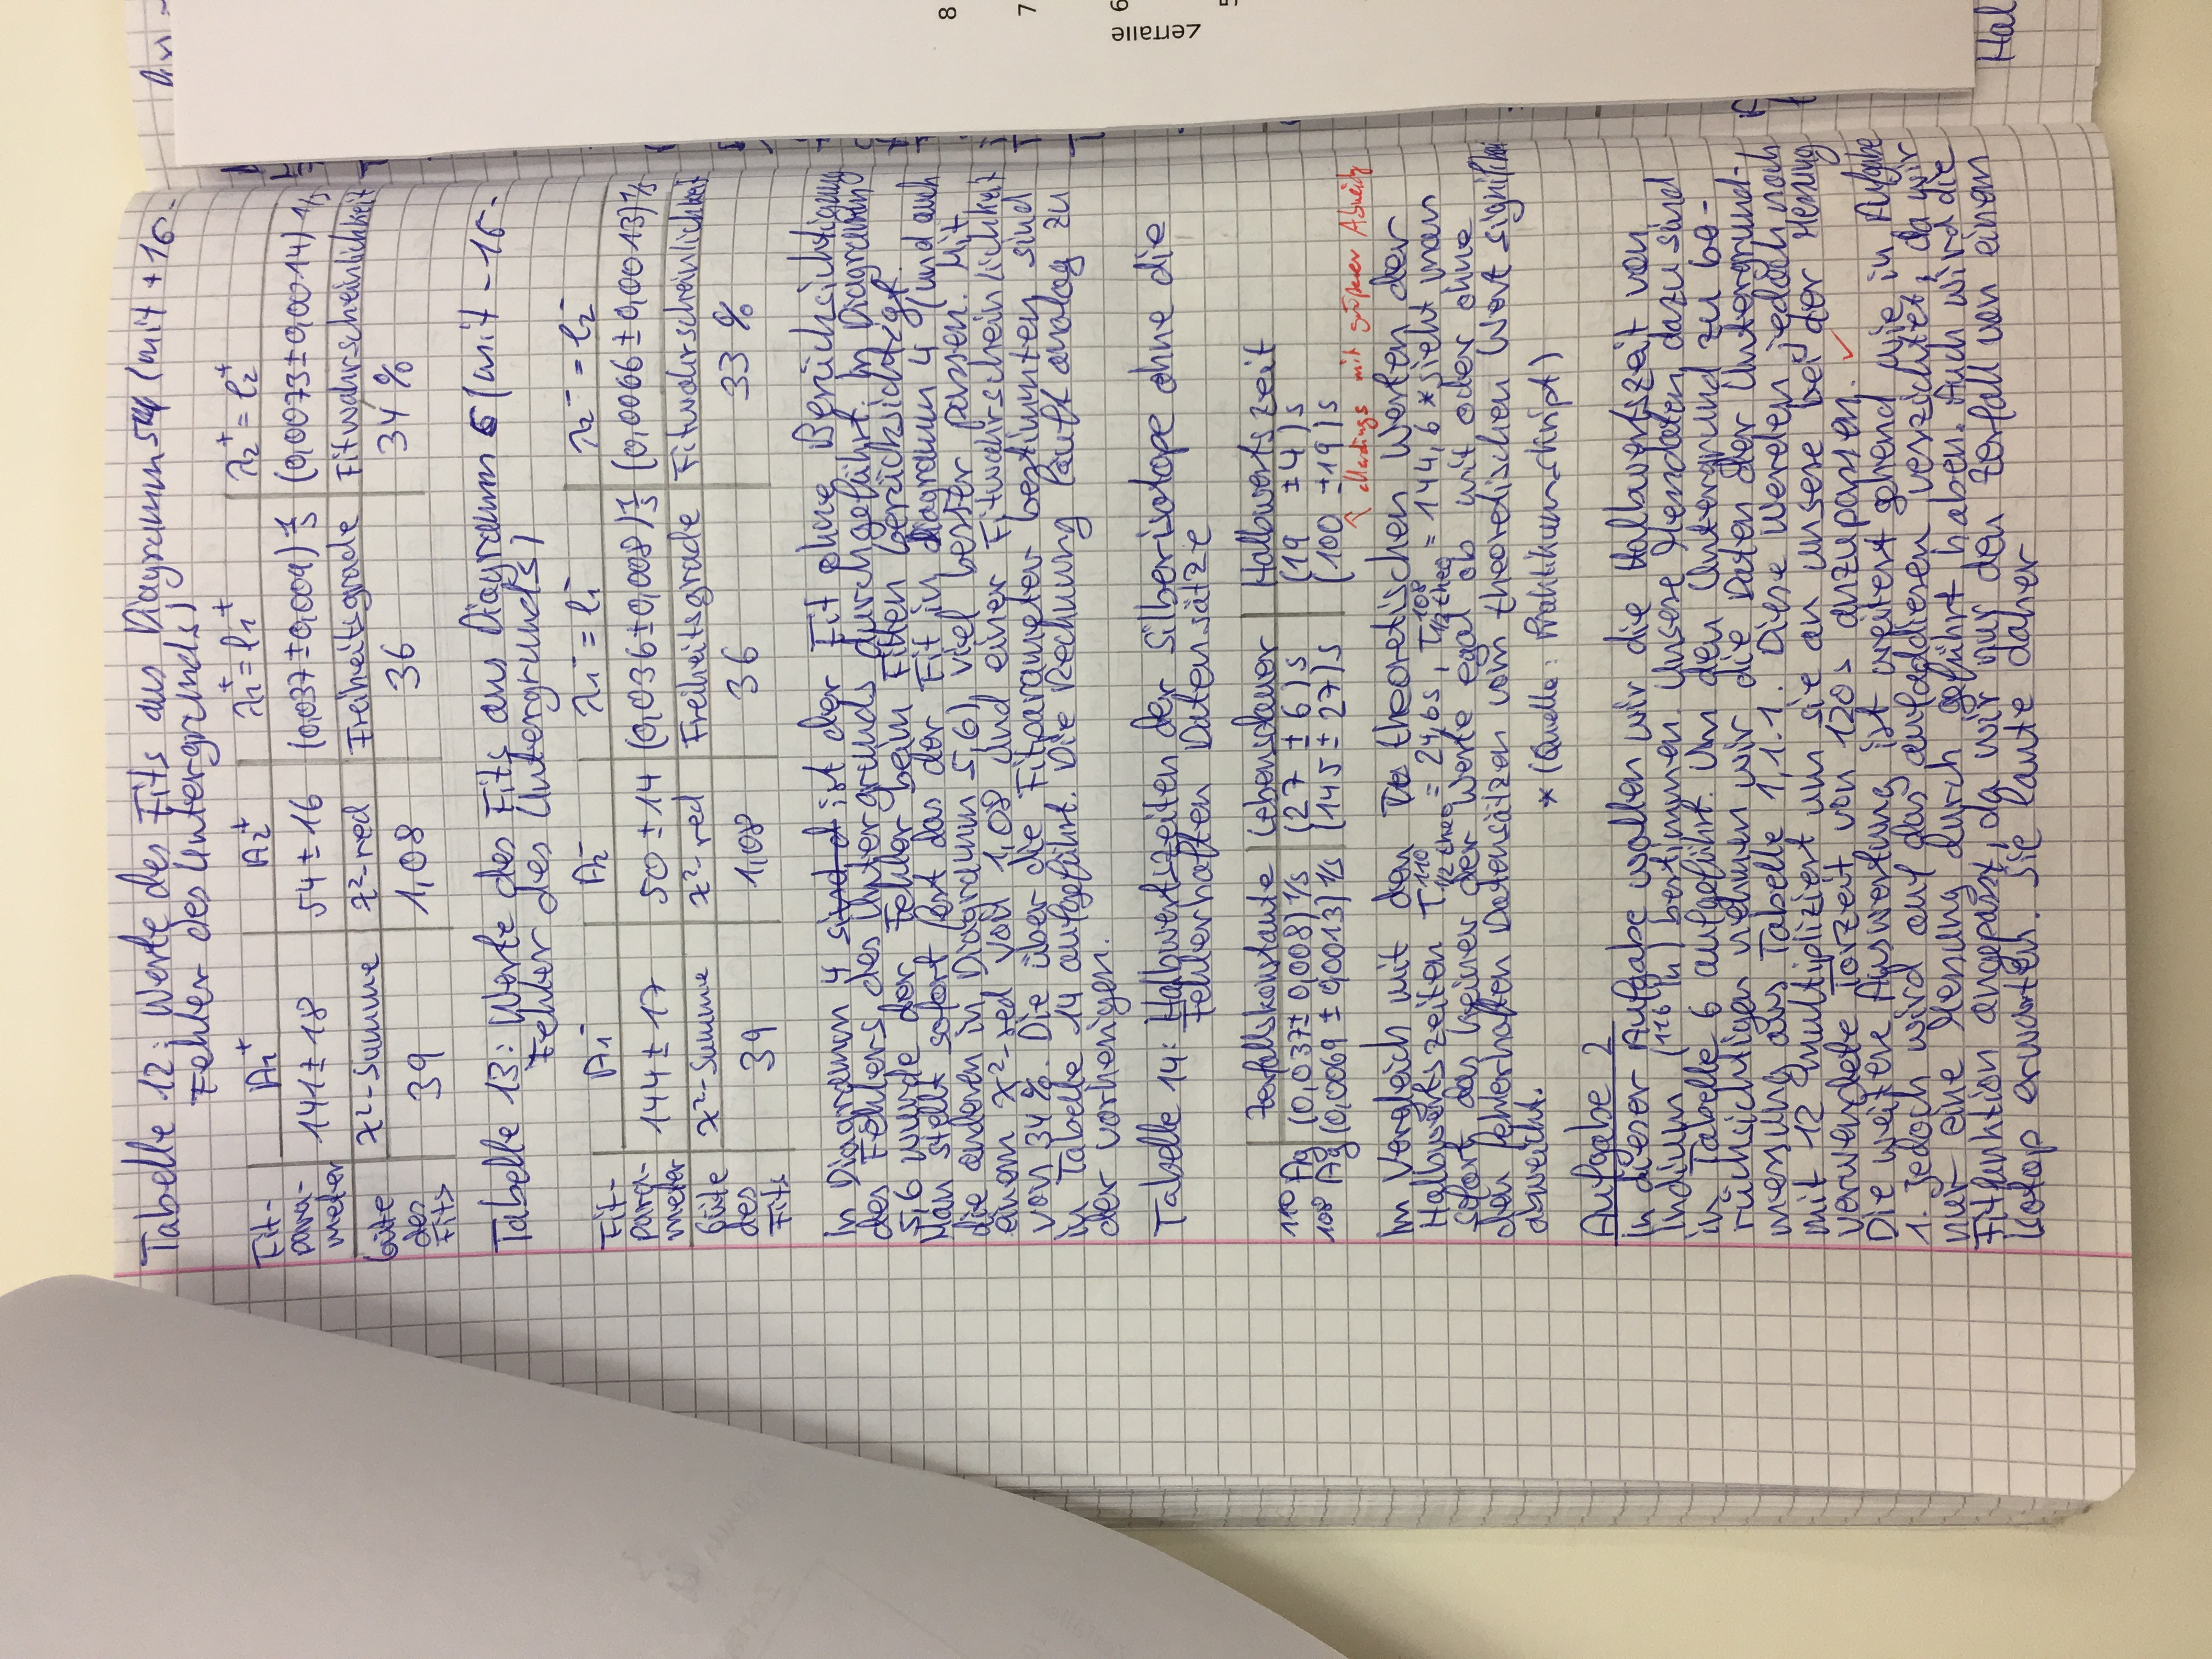 Tabelle 12: Werte des Fits aus Diagramm 5 (mit +1σ-
Fehler des Untergrunds)
Fit-
para-
meter
A1+ A2+ λ1+ = l1+ λ2+ = l2+
141 ± 18 54 ± 16 (0,037 ± 0,009) 1/s (0,0073 ± 0,0014) 1/s
Güte
des
Fits
χ²-Summe χ²-red Freiheitsgrade Fitwahrscheinlichkeit
39 1,08 36 34 %
Tabelle 13: Werte des Fits aus Diagramm 6 (mit -1σ-
Fehler des Untergrunds)
Fit-
para-
meter
A1- A2- λ1- = l1- λ2- = l2-
144 ± 17 50 ± 14 (0,036 ± 0,008) 1/s (0,0066 ± 0,0013) 1/s
Güte
des
Fits
χ²-Summe χ²-red Freiheitsgrade Fitwahrscheinlichkeit
39 1,08 36 33 %
In Diagramm 4 sind d ist der Fit ohne Berücksichtigung
des Fehlers des Untergrunds durchgeführt. In Diagramm
5,6 wurde der Fehler beim Fitten berücksichtigt.
Man stellt sofort fest das der Fit in diagramm 4 (und auch
die anderen in Diagramm 5,6) viel besser passen. Mit
einem χ²-red von 1,08 und einer Fitwahrscheinlichkeit
von 34 %. Die über die Fitparameter bestimmten sind
in Tabelle 14 aufgeführt. Die Rechnung läuft analog zu
der vorherigen.
Tabelle 14: Halbwertszeiten der Silberisotope ohne die
Fehlerhaften Datensätze
Zerfallskonstante Lebensdauer Halbwertszeit
110 Ag (0,037 ± 0,008) 1/s (27 ± 6) s (19 ± 4) s
108 Ag (0,0069 ± 0,0013) 1/s (145 ± 27) s (100 ± 19) s
↑ allerdings mit größerer Abweichg
Im Vergleich mit den theoretischen Werten der
Halbwertszeiten T110 1/2 theo = 24,6s, T108 1/2 theo = 144,6 * sieht man
sofort das keiner der Werte egal ob mit oder ohne
den fehlerhaften Datensätzen vom theoretischen Wert signifikant
abweicht.
* (Quelle: Praktikumsskript)
Aufgabe 2
In dieser Aufgabe wollen wir die Halbwertszeit von
Indium (116 In) bestimmen. Unsere Messdaten dazu sind
in Tabelle 6 aufgeführt. Um den Untergrund zu be-
rücksichtigen nehmen wir die Daten der Untergrund-
messung aus Tabelle 1, 1.1. Diese werden jedoch noch
mit 12 multipliziert um sie an unsere bei der Messung
verwendete Torzeit von 120s anzupassen. ✓
Die weitere Auswertung ist weitest gehend wie in Aufgabe
1. Jedoch wird auf das aufaddieren verzichtet, da wir
nur eine Messung durch geführt haben. Auch wird die
Fitfunktion angepasst, da wir nur den Zerfall von einem
Isotop erwarten. Sie laute daher
8
7
6
5
Zerfälle
Hal